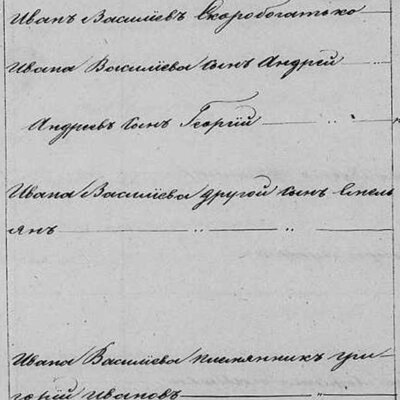 Иванъ Васильевъ Скоробогатько
Ивана Васильева сынъ Андрей
Андреевъ сынъ Георгій
Ивана Васильева другой сынъ Емель
янъ
Ивана Васильева племянникъ Гри-
горій Ивановъ